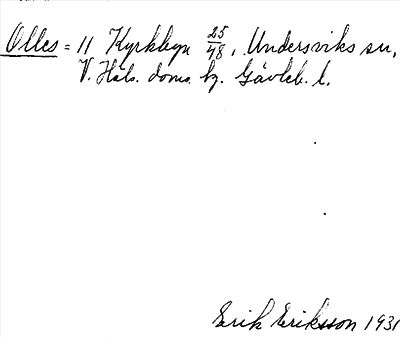 Olles = 11 Kyrkbyn 25/48, Undersviks sn,
V. Häls. doms. hg. Gävleb. l.
Erik Eriksson 1931